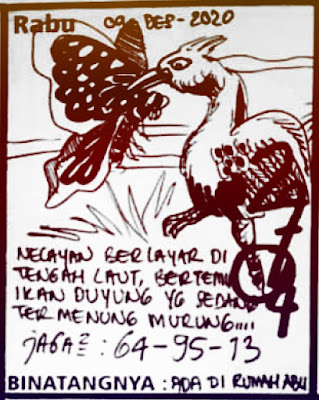 Rabu 09 DES - 2020
NELAYAN BERLAYAR DI
TENGAH LAUT, BERTEMU
IKAN DUYUNG YG SEDANG
TERMENUNG MURUNG....
JAGA² : 64-95-13
BINATANGNYA : ADA DI RUMAH ABU